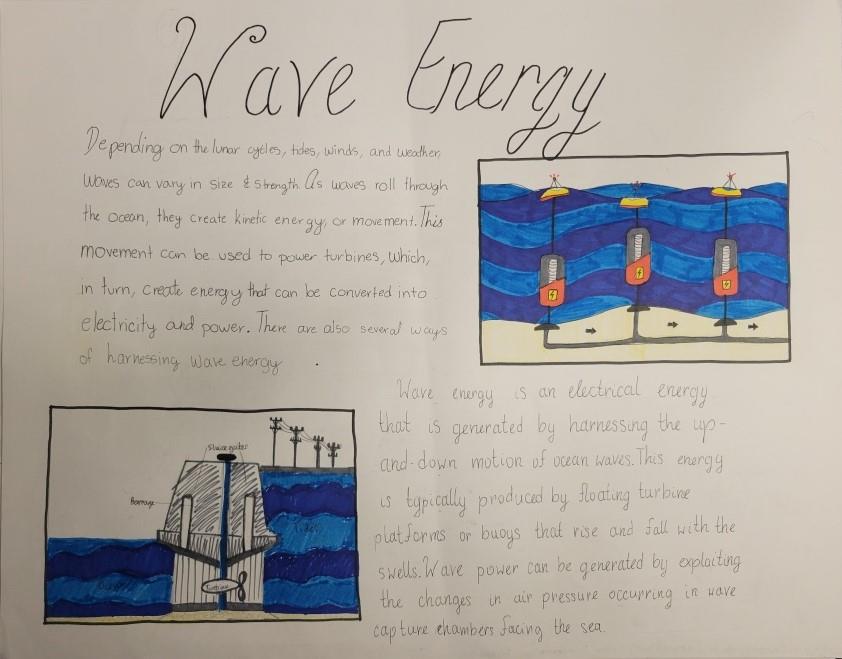 Wave Energy
Depending on the lunar cycles, tides, winds, and weather,
waves can vary in size & strength. As waves roll through
the ocean, they create kinetic energy, or movement. This
movement can be used to power turbines, which,
in turn, create energy that can be converted into
electricity and power. There are also several ways
of harnessing wave energy.
Wave energy is an electrical energy
that is generated by harnessing the up-
and-down motion of ocean waves. This energy
is typically produced by floating turbine
platforms or buoys that rise and fall with the
swells. Wave power can be generated by exploiting
the changes in air pressure occurring in wave
capture chambers facing the sea.
Sluice gates
Barrage
Turbine